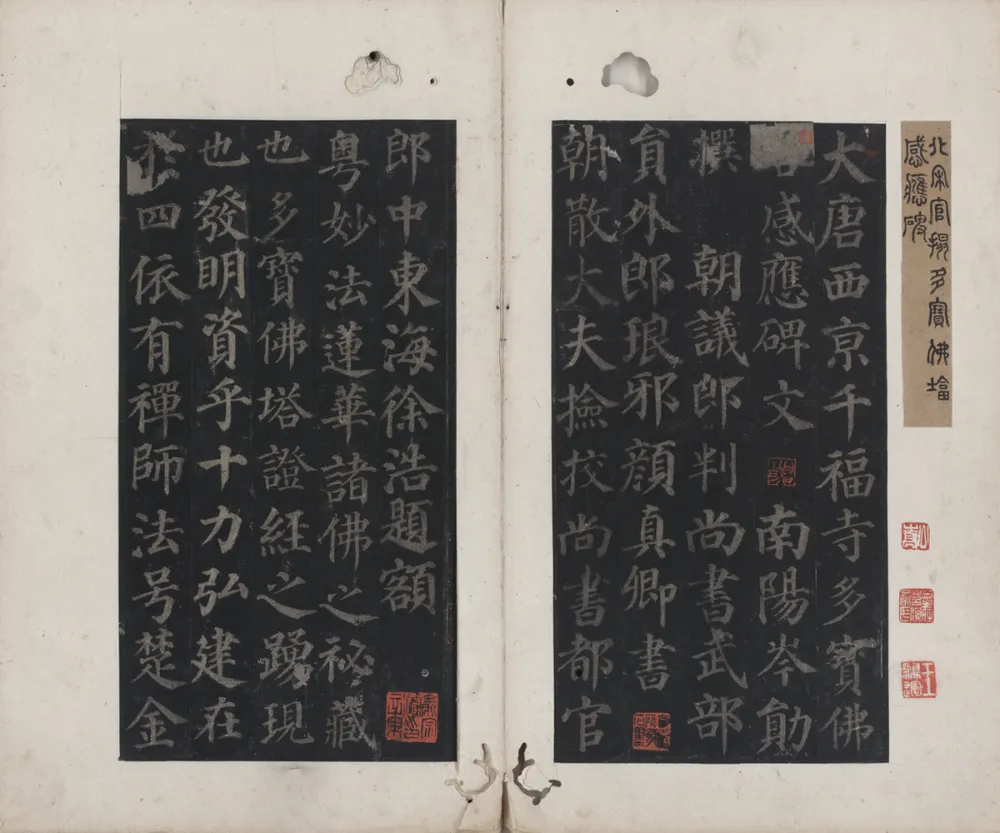 北宋官搨多寶佛塔
感應碑
大唐西京千福寺多寶佛
感應碑文 南陽岑勛
撰 朝議郎判尚書武部
貟外郎琅邪顏真卿書
朝散大夫撿挍尚書都官
郎中東海徐浩題額
粵妙法蓮華諸佛之祕藏
也多寶佛塔證經之踴現
也發明資乎十力弘建在
於四依有禪師法号楚金